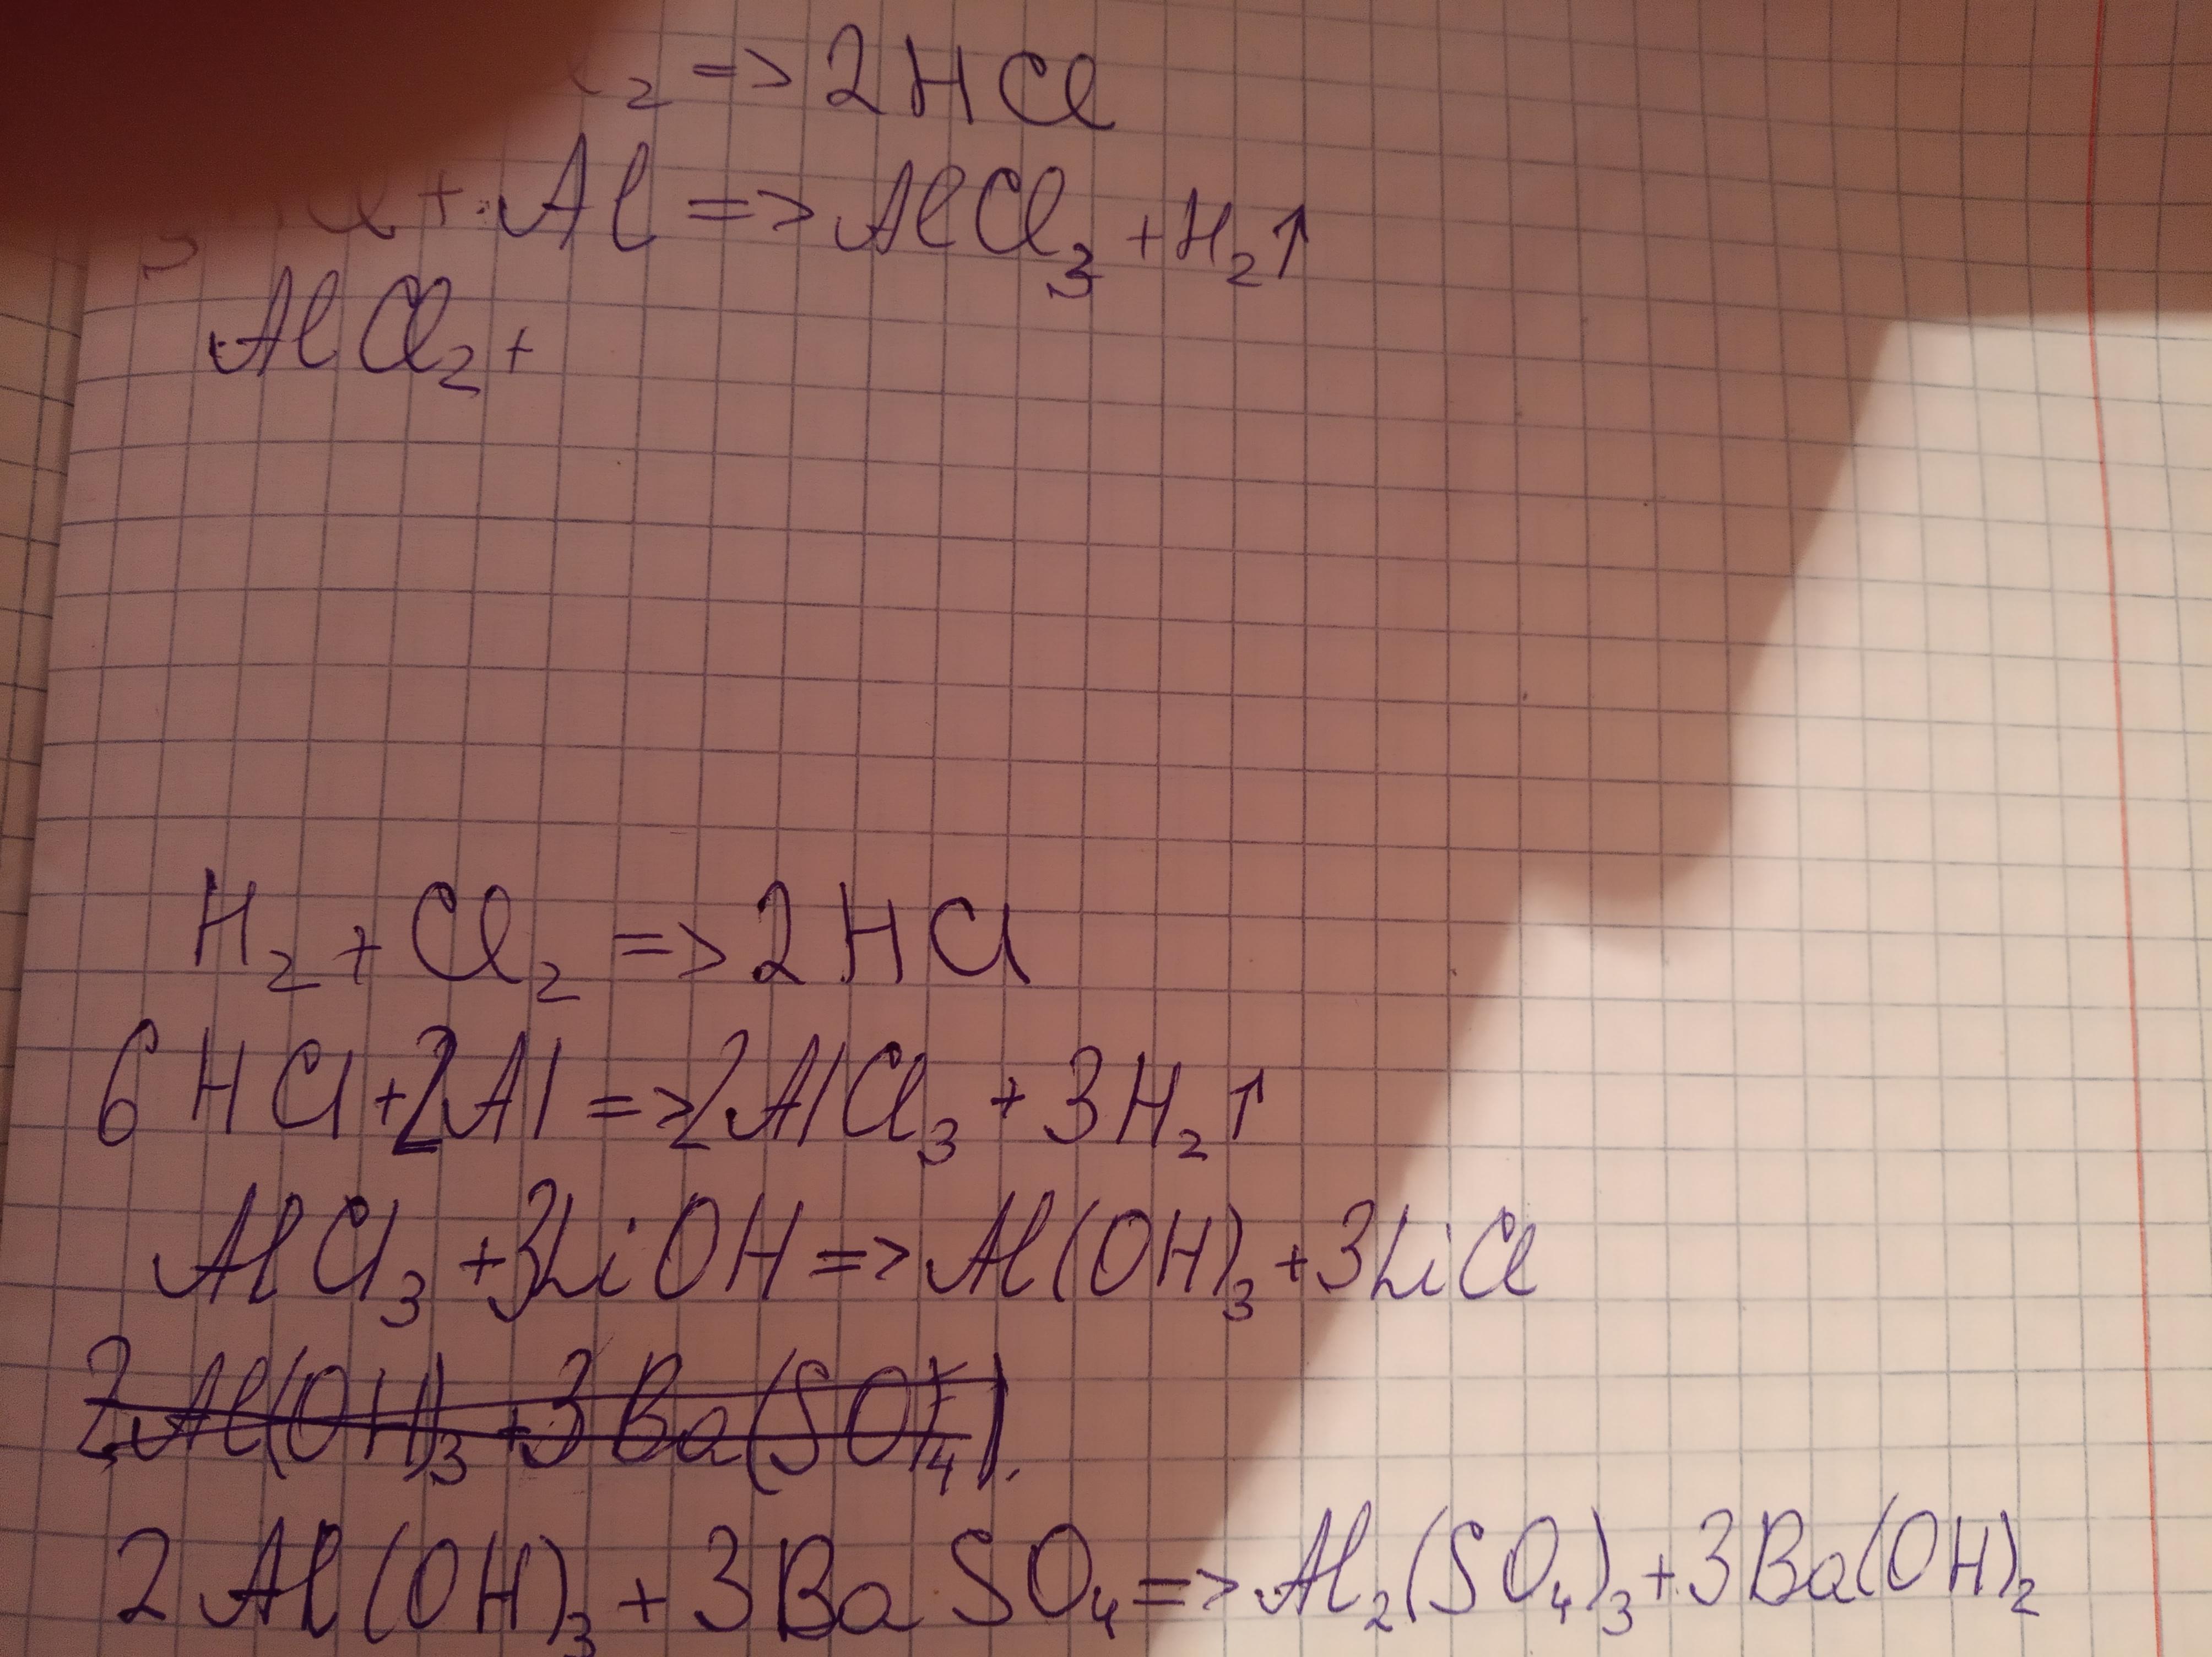 ₂ => 2HCl
HCl + Al => AlCl₃ + H₂↑
AlCl₂ +
H₂ + Cl₂ => 2HCl
6HCl + 2Al => 2AlCl₃ + 3H₂↑
AlCl₃ + 3LiOH => Al(OH)₃ + 3LiCl
2Al(OH)₃ + 3Ba(SO₄)
2Al(OH)₃ + 3BaSO₄ => Al₂(SO₄)₃ + 3Ba(OH)₂